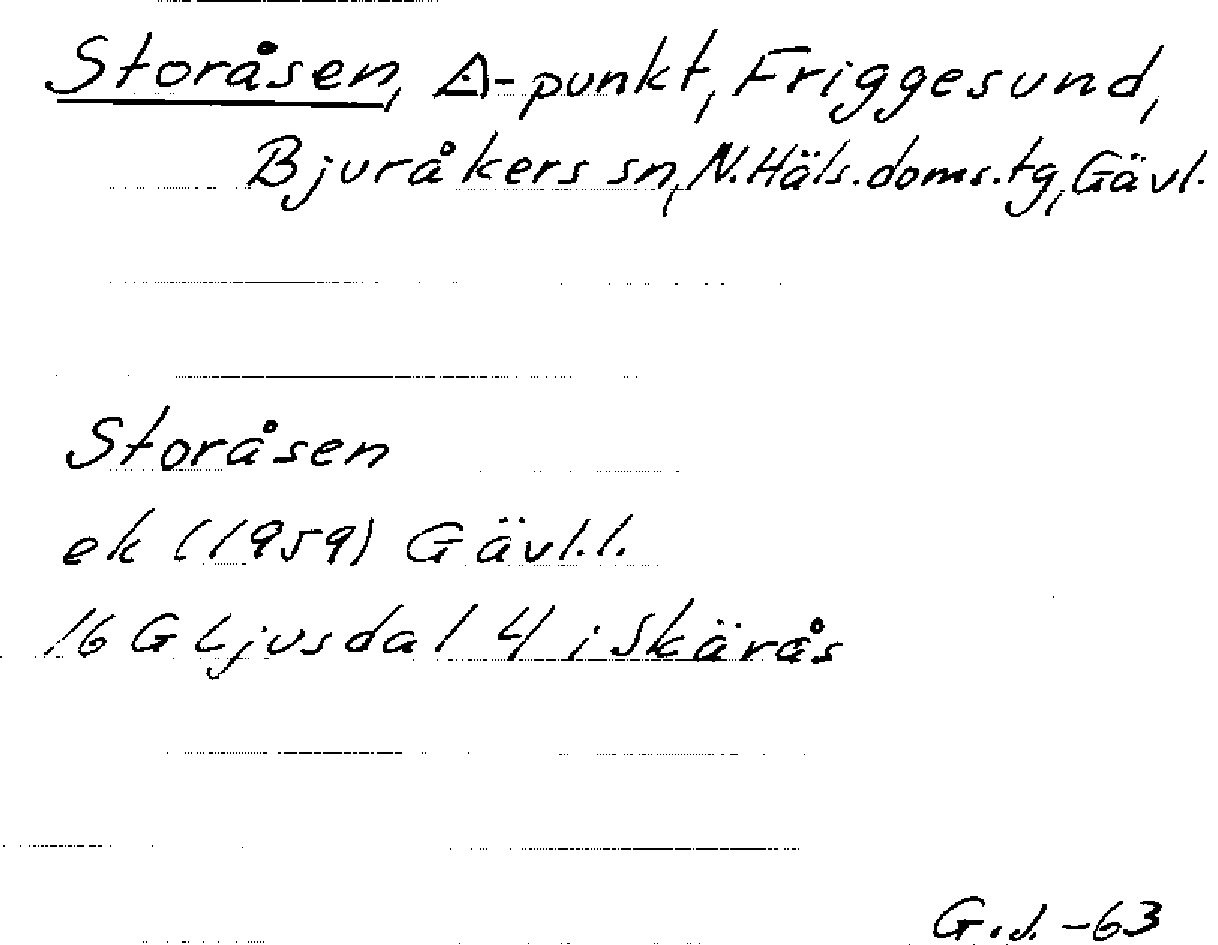 Storåsen, △-punkt, Friggesund,
Bjuråkers sn, N. Häls. doms. tg, Gävl.
Storåsen
ek (1959) Gävl. l.
16 G Ljusdal 4 i Skärås
G.J. -63